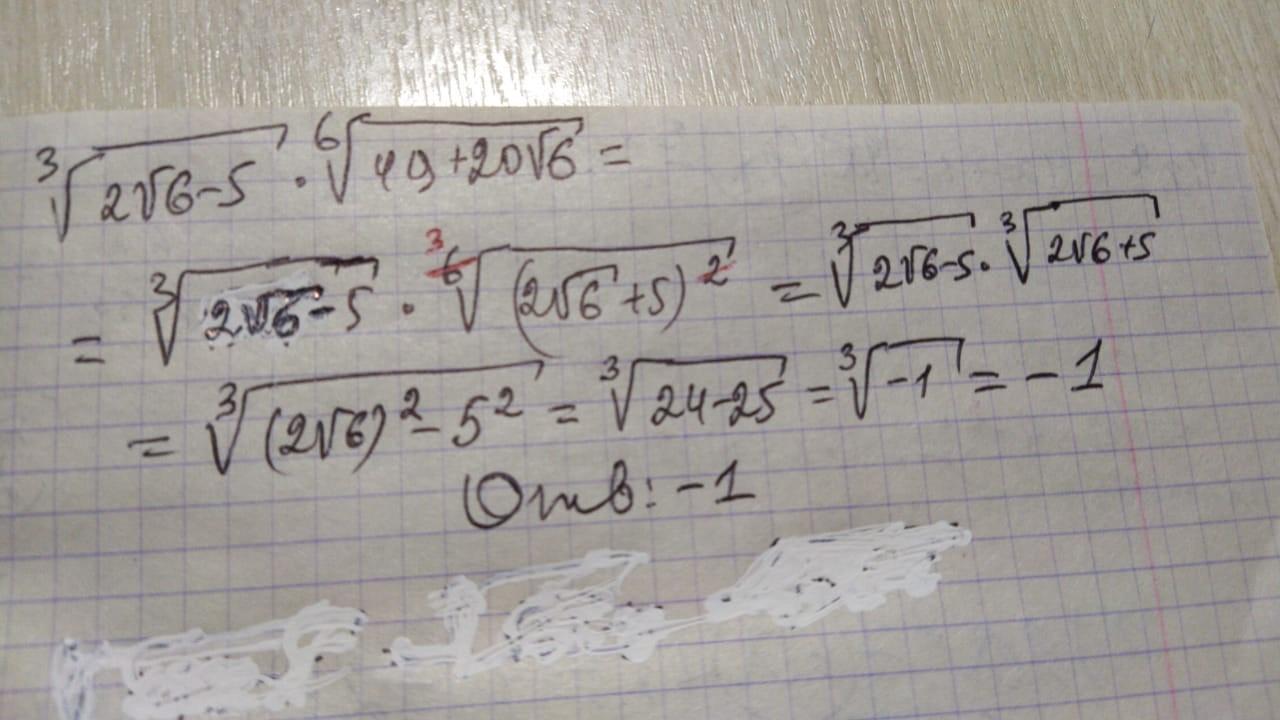 ∛(2√6-5) · ⁶√(49+20√6) =
= ∛(2√6-5) · ³⁶√((2√6+5)²) = ∛(2√6-5) · ∛(2√6+5)
= ∛((2√6)²-5²) = ∛(24-25) = ∛(-1) = -1
Отв: -1